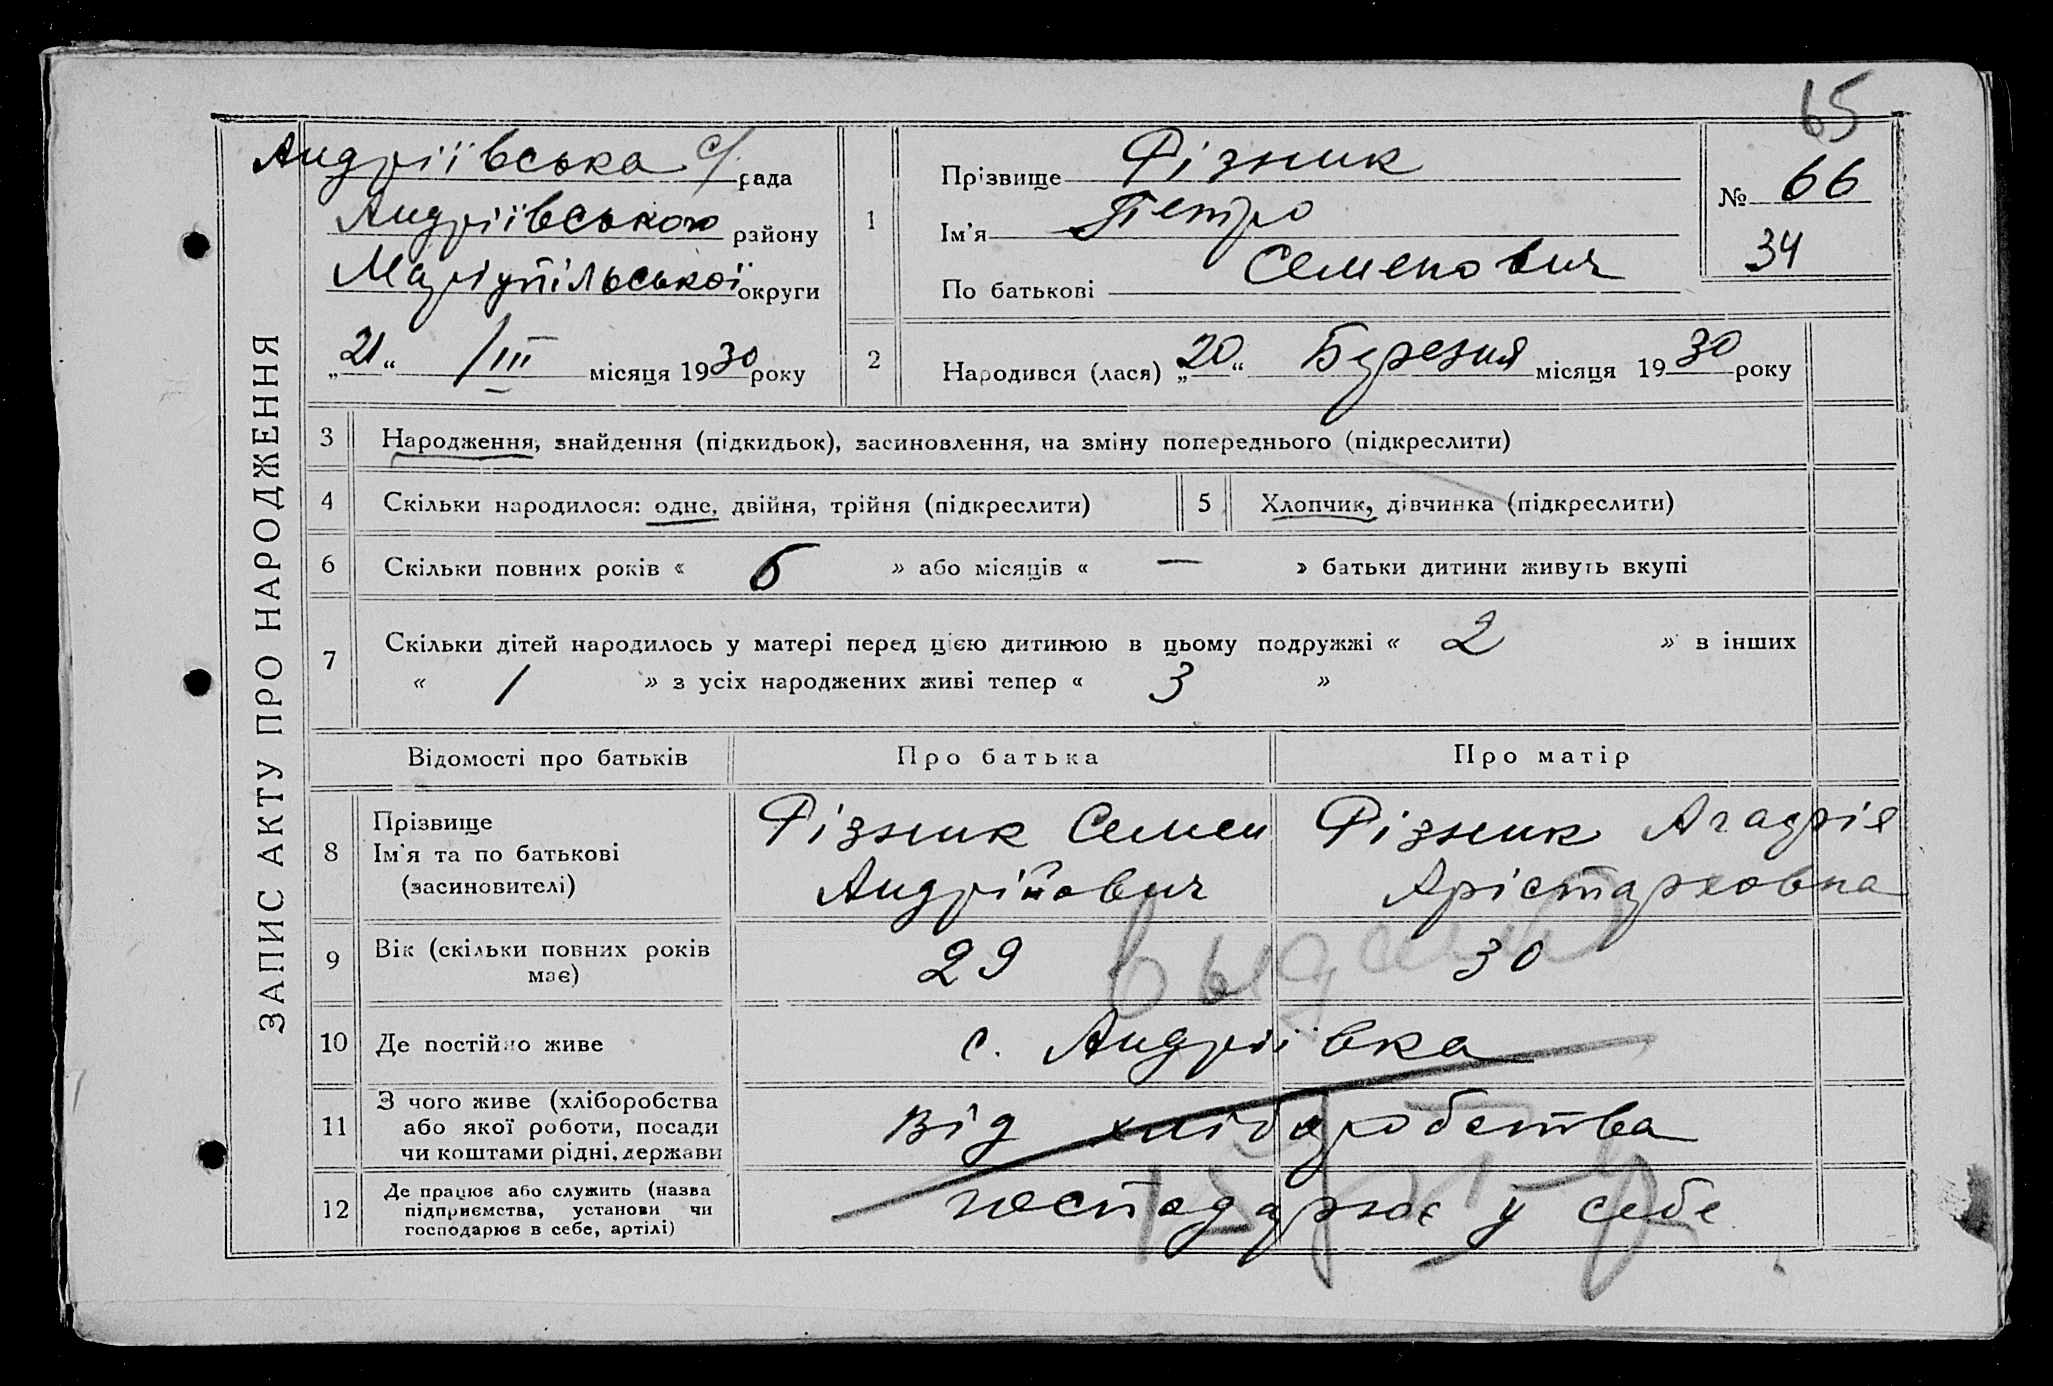 65
ЗАПИС АКТУ ПРО НАРОДЖЕННЯ
Андріївська с/рада
Андріївського району
Маріупільської округи
„21“ /III місяця 1930 року
1
Прізвище Фізник
Ім'я Петро
По батькові Семенович
№ 66
34
2
Народився (лася) „20“ Березня місяця 1930 року
3 Народження, знайдення (підкидьок), засиновлення, на зміну попереднього (підкреслити)
4 Скільки народилося: одне, двійня, трійня (підкреслити)
5 Хлопчик, дівчинка (підкреслити)
6 Скільки повних років « 6 » або місяців « — » батьки дитини живуть вкупі
7 Скільки дітей народилось у матері перед цією дитиною в цьому подружжі « 2 » в інших
« 1 » з усіх народжених живі тепер « 3 »
Відомості про батьків Про батька Про матір
8
Прізвище
Ім'я та по батькові
(засиновителі)
Фізник Семен
Андрійович
Фізник
Арістарховна
9 Вік (скільки повних років
має)
29 30
выдан
10 Де постійно живе с. Андріївка
11 З чого живе (хліборобства
або якої роботи, посади
чи коштами рідні, держави
Від хліборобства
12 Де працює або служить (назва
підприємства, установи чи
господарює в себе, артілі)
господарює у себе